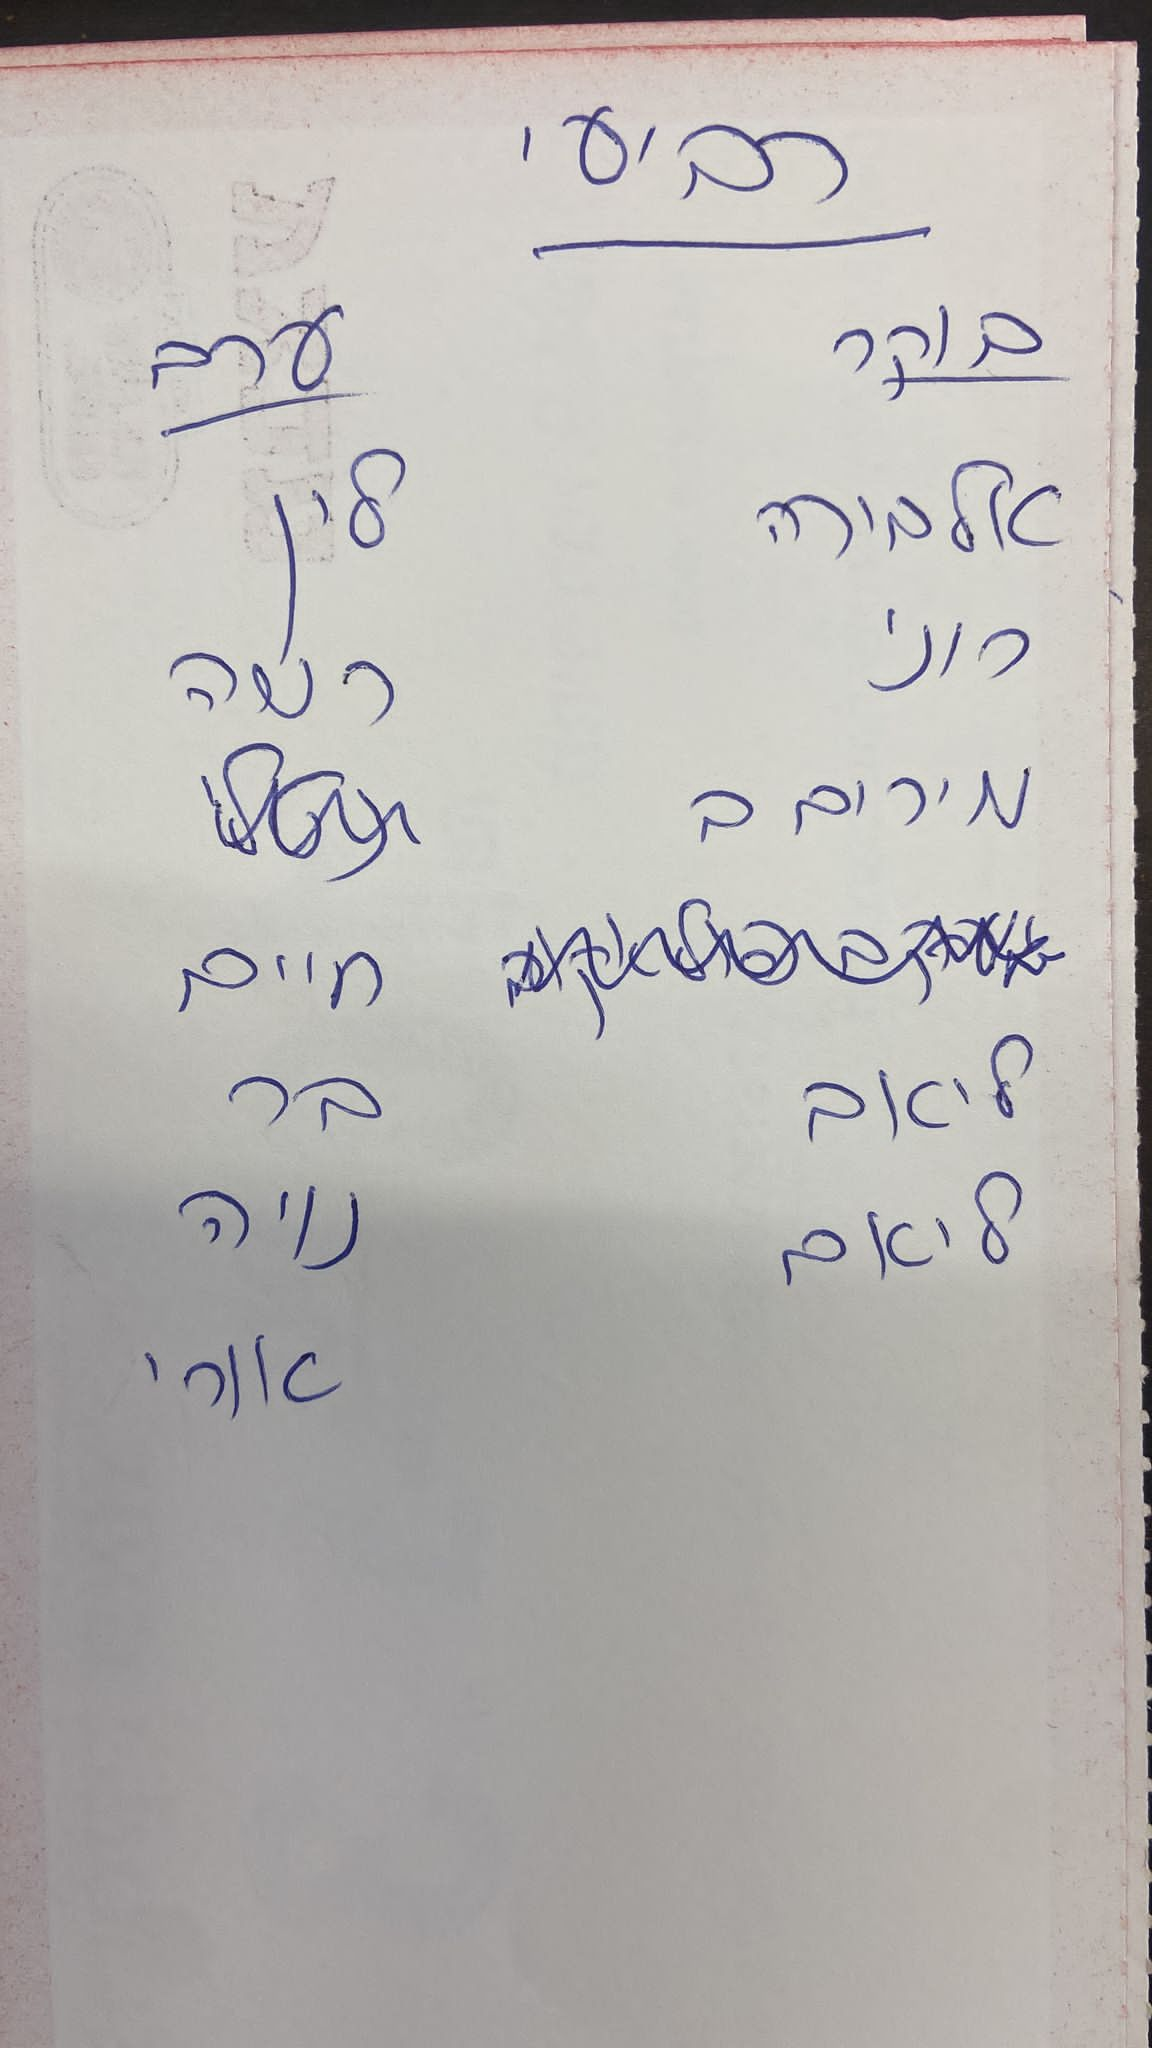 רביעי
בוקר
אלבירה
רוני
מירים ב
ליאב
ליאם
ערב
לין
רשה
חיים
בר
נויה
אורי